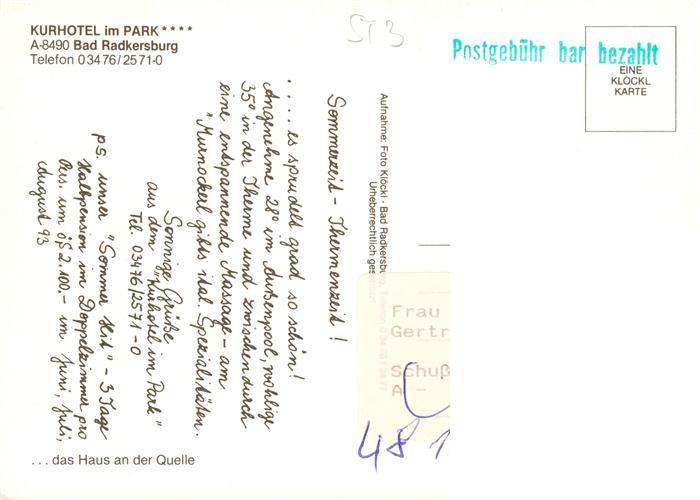 KURHOTEL im PARK ****
A-8490 Bad Radkersburg
Telefon 03476/2571-0
ST 3
Postgebühr bar bezahlt
EINE
KLÖCKL
KARTE
Sommerzeit - Thermenzeit!
.... es sprudelt grad so schön!
Angenehme 28° im Außenpool, wohlige
35° in der Therme und zwischendurch
eine entspannende Massage - am
"Murnockerl gibts ital. Spezialitäten.
Sonnige Grüße
aus dem "Kurhotel im Park"
Tel. 03476/2571-0
ps. unser "Sommer Hit" - 3 Tage
Halbpension im Doppelzimmer pro
Pers. um öS 2.100,- im Juni, Juli,
August 93
Aufnahme: Foto Klöckl · Bad Radkersburg, Telefon 0 34 76 /
Urheberrechtlich ges
Frau
Gertr
Schuß
A -
48 1
... das Haus an der Quelle